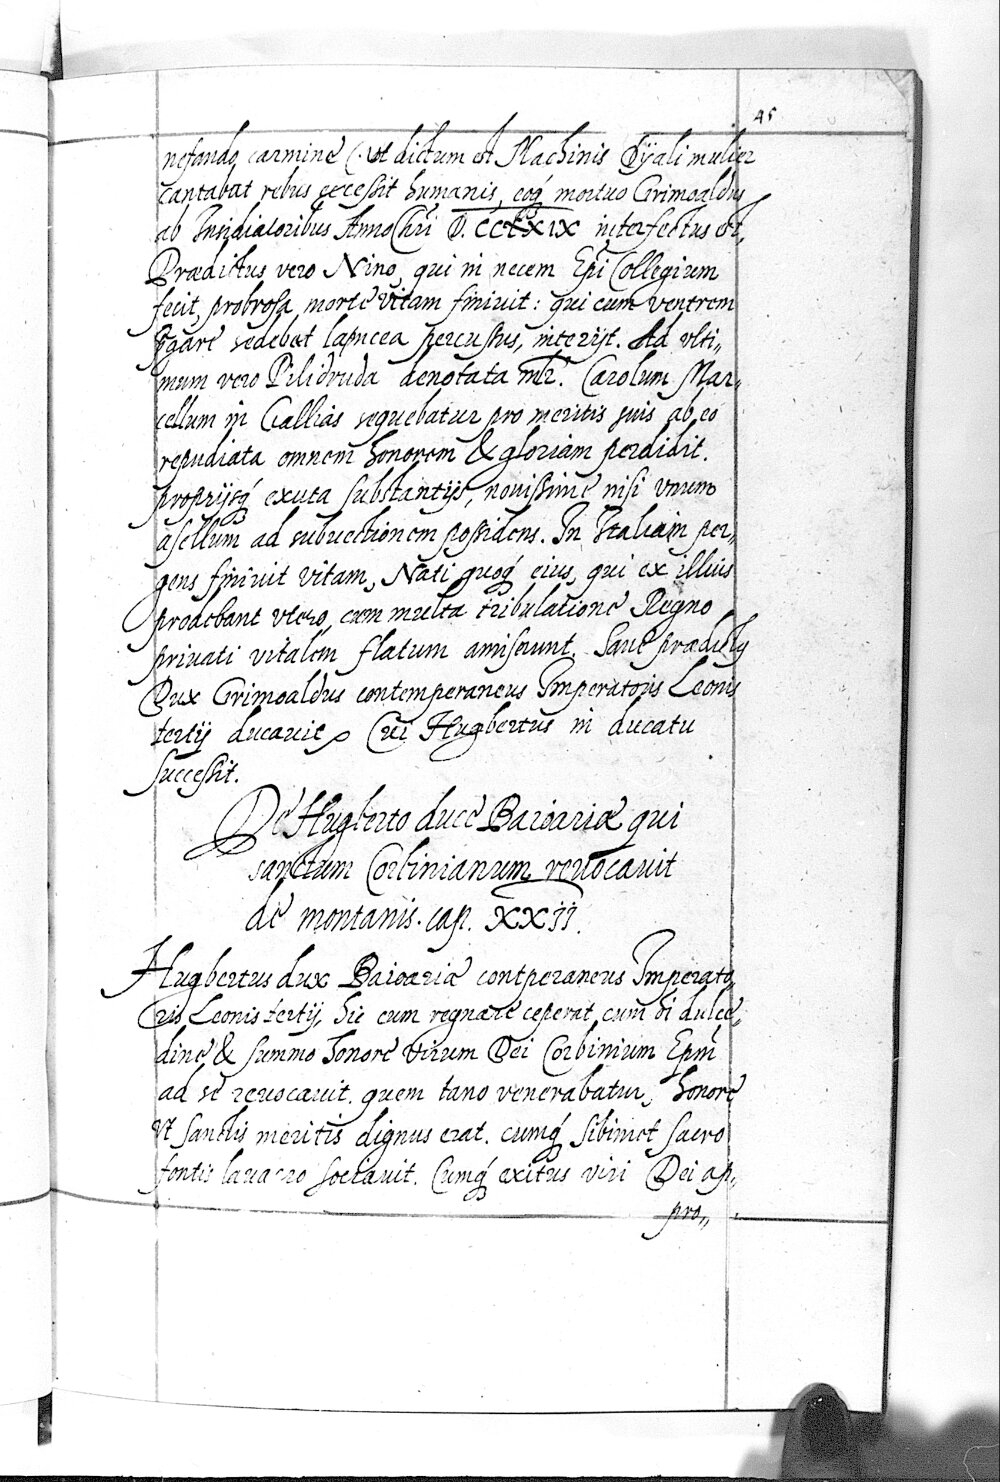 45
nefando carmine (. vt dictum est Machinis Dyali mulier
cantabat rebus excessit humanis, eoq́ mortuo Grimoaldus
ab Insidiatoribus Anno Chr̃i D. CCCXIX interfectus est,
Prædictus vero Nino, qui in necem Ep̃i Collegium
fecit, probrosa morte vitam finiuit: qui cum ventrem
pgare sedebat lancea percussus, interijt. Ad vlti,
mum vero Pilidruda denotata ml̃r. Carolum Mar,
cellum in Gallias sequebatur pro meritis suis ab eo
repudiata omnem honorem & gloriam perdidit.
proprijsq́ exuta substantijs, nouissime nisi vnum
asellum ad subuectionem possidens. In Italiam per,
gens finiuit vitam, Nati quoq́ eius, qui ex illius
prodebant vtero, cum multa tribulatione Regno
priuati vitalem flatum amiserunt. Sane prædictus
Dux Grimoaldus contemperaneus Imperatoris Leonis
tertij ducauit Cui Hugbertus in ducatu
successit.
De Hugberto duce Baioariæ qui
sanctum Corbinianum reuocauit
de montanis. cap. XXII.
Hugbertus dux Baioariæ contperaneus Imperato,
ris Leonis tertij, hic cum regnare ceperat, cum di dulce,
dine & summo honore virum Dei Corbinium Ep̃m
ad se reuocauit. quem tano venerabatur, honore
vt sanctis meritis dignus erat. cumq́ sibimet sacro
fontis lauacro sociauit. Cumq́ exitus viri Dei ap,
pro,,